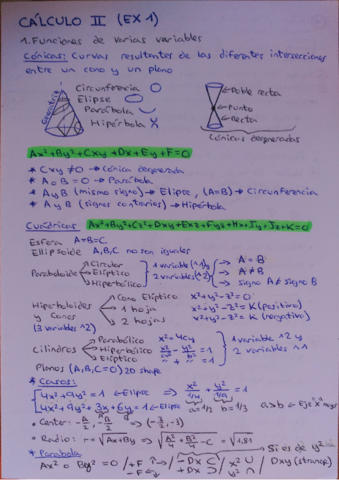 CÁLCULO II (EX 1)
1. Funciones de varias variables
Cónicas: Curvas resultantes de las diferentes intersecciones
entre un cono y un plano
Circunferencia
Elipse
Parábola
Hipérbola
Generatriz
Doble recta
Punto
Recta
Cónicas degeneradas
Ax²+By²+Cxy+Dx+Ey+F=0
* Cxy ≠0 → Cónica degenerada
* A o B = 0 → Parábola
* A y B (mismo signo) → Elipse, (A=B) → Circunferencia
* A y B (signos contarios) → Hipérbola
Cuádricas Ax²+By²+Cz²+Dxy+Exz+Fyz+Hx+Jy+Jz+K=0
Esfera A=B=C
Ellipsoide A,B,C no son iguales
Paraboloide Circular Elíptico Hiperbólico
1 variable (^1) y
2 variables (^2)
→ A = B
→ A ≠ B
→ signo A ≠ signo B
Hiperboloides y Conos (3 variables ^2)
Cono Elíptico x²+y²-z²=0
1 hoja x²+y²-z²=K (positivo)
2 hojas x²+y²-z²=K (negativo)
Cilindros Parabólico x²=4cy
Hiperbólico x²/a² - y²/b² = 1
Elíptico " + " = 1
1 variable ^2 y
2 variables ^1
Planos (A,B,C=0)
* Casos:
4x²+9y²=1 ← Elipse ⇒ x²/¼ + y²/⅑ = 1
4x²+9y²+3x+6y=1 ← Elipse a=1/2 b=1/3 a>b ← Eje x mayor
• Centro:
• Radio: r=
* Parábola
Si es de y²
Ax² o By²=0